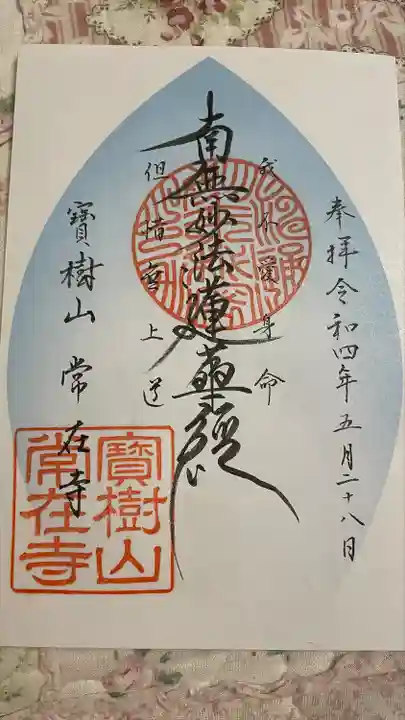 奉拝令和四年五月二十八日
我不愛身命
南無妙法蓮華経
但惜無上道
寶樹山 常在寺
寶樹山
常在寺